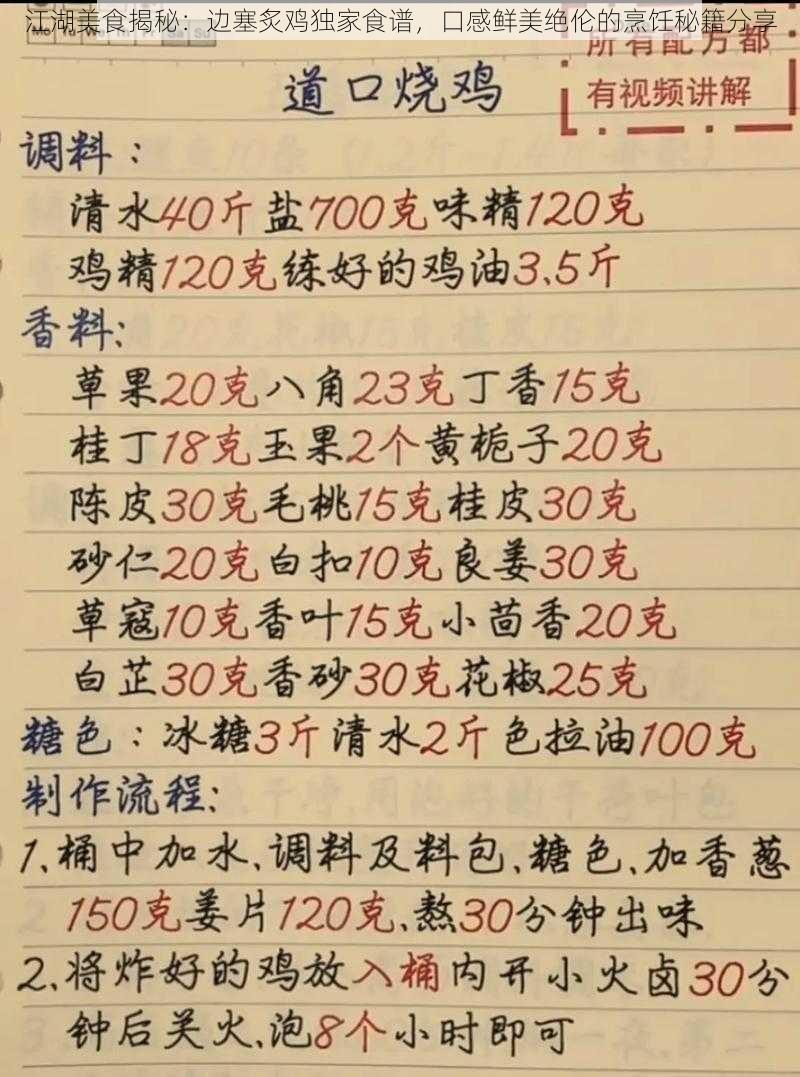 江湖美食揭秘：边塞炙鸡独家食谱，口感鲜美绝伦的烹饪秘籍分享
所有配方都
有视频讲解
道口烧鸡
调料：
清水40斤盐700克味精120克
鸡精120克练好的鸡油3.5斤
香料:
草果20克八角23克丁香15克
桂丁18克玉果2个黄栀子20克
陈皮30克毛桃15克桂皮30克
砂仁20克白扣10克良姜30克
草寇10克香叶15克小茴香20克
白芷30克香砂30克花椒25克
糖色：冰糖3斤清水2斤色拉油100克
制作流程:
1、桶中加水、调料及料包、糖色、加香葱
150克姜片120克、熬30分钟出味
2、将炸好的鸡放入桶内开小火卤30分
钟后关火、泡8个小时即可